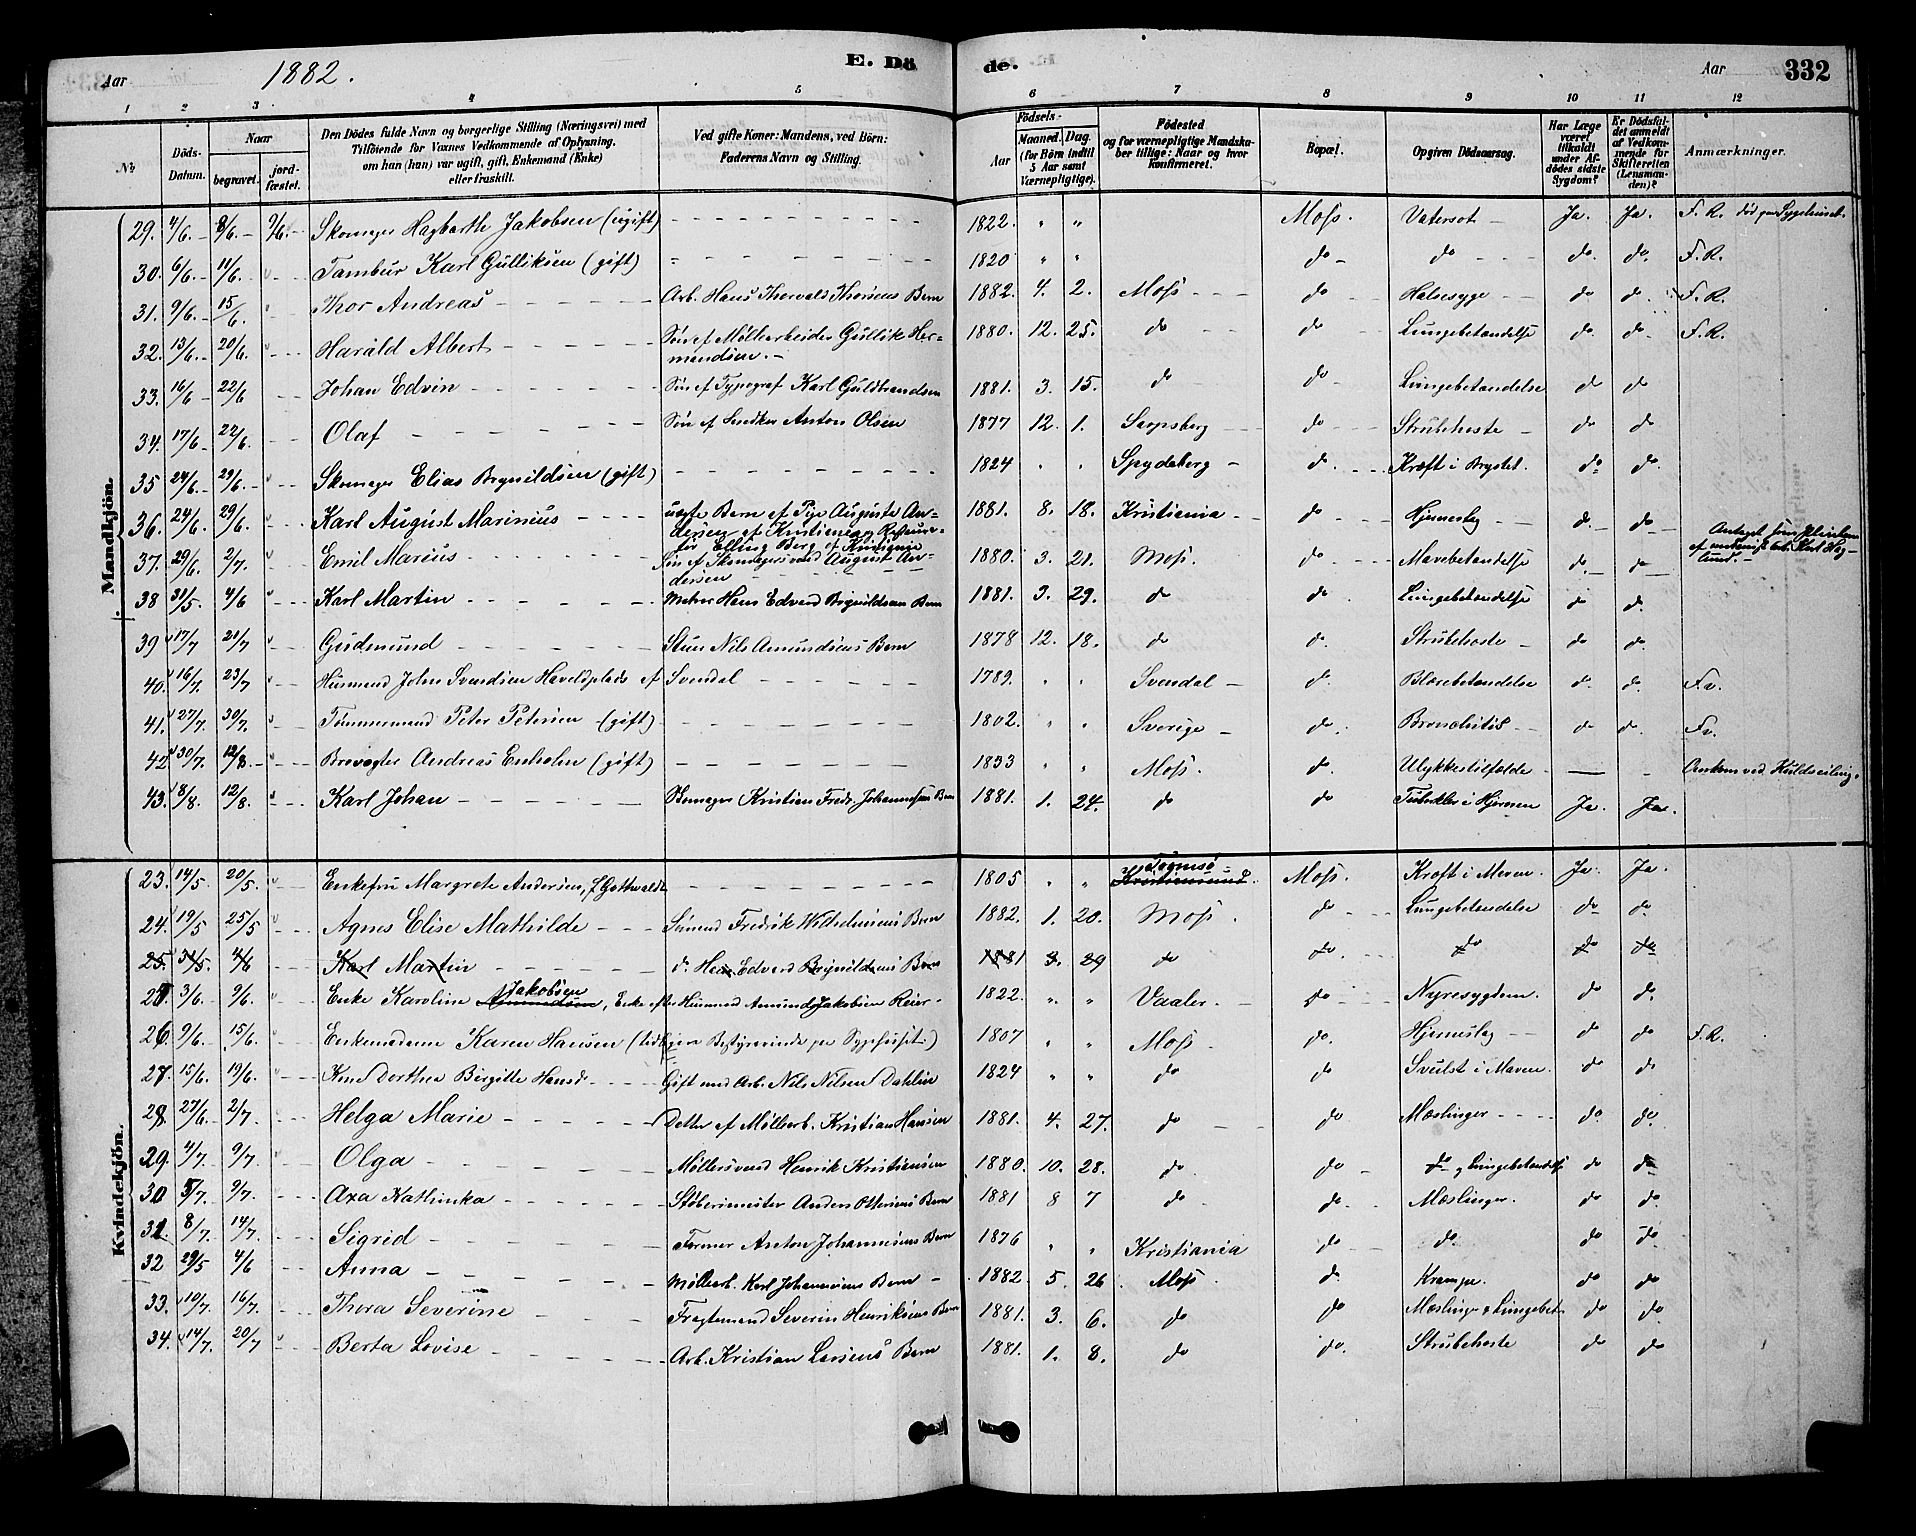 Aar 1882. E. Dö de. Aar 332
1 2 3 4 5 6 7 8 9 10 11 12
No
Döds-Datum.
Naar begravet. jord-fæstet.
Den Dödes fulde Navn og borgerlige Stilling (Næringsvei) med Tilföiende for Voxnes Vedkommende af Oplysning, om han (hun) var ugift, gift, Enkemand (Enke) eller fraskilt.
Ved gifte Koner: Mandens, ved Börn: Faderens Navn og Stilling.
Födsels- Aar Maaned. Dag. (for Börn indtil 5 Aar samt Værnepligtige).
Födested og for værnepligtige Mandskaber tillige: Naar og hvor konfirmeret.
Bopæl.
Opgiven Dödsaarsag.
Har Læge været tilkaldt under Afdödes sidste Sygdom?
Er Dödsfaldet anmeldt af Vedkommende for Skifteretten (Lensmanden)?
Anmærkninger.
Mandkjön.
29. 4/6. 8/6. 9/6. Skomager Hagbarth Jakobsen (ugift) 1822. " " Moss. Vatersot Ja. Ja. F. R. död paa Sygehuset.
30. 6/6. 11/6. Tambur Karl Gulliksen (gift) 1820 " " do do do. do. F. R.
31. 9/6. 15/6. Thor Andreas Arb. Hans Thorvald Thorsens Barn 1882. 4. 2. Moss do Halsesyge do do F. R.
32. 13/6. 20/6. Harald Albert Sön af Möllearbeider Gullik Her-
mandsen. 1880. 12. 25. do do Lungebetændelse do do F. R.
33. 16/6 22/6 Johan Edvin Sön af Typograf Karl Guldbrandsen 1881. 3. 15. do do Lungebetændelse do do
34. 17/6. 22/6. Olaf Sön af Snedker Anton Olsen 1877 12. 1. Sarpsborg do Strubehoste do do
35 24/6. 29/6. Skomager Elias Brynildsen (gift) 1824 " " Spydeberg d. Kræft i Brystet. do do.
36. 24/6. 29/6. Karl August Marinius uægte Barn af Pige Auguste An-
dersen af Kristiania og
Elling Berg af Kristiania 1881. 8. 18. Kristiania do Hjerneslag d. do
37. 29/6. 2/7. Emil Marius Sön af Skomagersvend August An-
dersen 1880. 3. 21. Moss. do Mavebetændelse do do
38 31/5. 4/6 Karl Martin Matros Hans Edvard Brynildsens Barn 1881. 3. 29. do do. Lungebetændelse do do.
39 17/7 21/7 Gudmund Stuer Nils Amundsens Barn 1878 12. 18. do d. Strubehoste do do
40. 16/7. 23/7 Husmand John Svendsen Haveldplads af Svendal 1789. " " Svendal d. Blærebetændelse d. d. F. v.
41. 27/7. 30/7. Tömmermand Peter Petersen (gift) 1802. " " Sverige do. Bronchitis do do. F. v.
42 30/7. 12/8. Brovogter Andreas Enholm (gift) 1833 " " Moss. d. Ulykkestilfælde
43. 8/8. 12/8. Karl Johan Skomager Kristian Fredr. Johannesens Barn 1881. 1. 24. do do Tuberkler i Hjernen Ja. Ja.
Kvindekjön.
23. 14/5. 20/5. Enkefru Margrete Andersen, f. Gottwaldt 1805 " " Tromsö Kristiansund. Moss. Kræft i Maven. Ja. Ja.
24. 19/5 25/5 Agnes Elise Mathilde Sömand Fredrik Wilhelmsens Barn 1882. 1. 20. Moss. do Lungebetændelse do do.
25. 31/5. 4/6 Karl Martin d. Hans Edvard Brynildsens Barn 1881 3. 29 do do do do do
25 3/6. 9/6. Enke Karoline Amundsen Jakobsen, Enke efter Husmand Amund Jakobsen Reier 1822. " " Vaaler. do Nyresygdom. do do.
26. 9/6. 15/6. Enkemadame Karen Hansen (tidligere Bestyrerinde paa Sygehuset.) 1807 " " Moss. do. Hjerneslag do do F. R.
27. 15/6. 19/6. Kone Dorthea Birgitte Hansd. Gift med Arb. Nils Nilsen Dahlin 1824 " " do do Svulst i Maven. do do
28. 27/6. 2/7. Helga Marie Datter af Möllerb. Kristian Hansen 1881. 4. 27. do do Mæslinger do. do.
29. 4/7. 9/7. Olga Möllersvend Henrik Kristiansen 1880. 10. 28. do. do do og Lungebetændelse do do
30 5/7. 9/7. Axa Kathinka Stöbermester Anders Ottersens Barn 1881 8 7 do do. Mæslinger. do do.
31. 8/7. 14/7. Sigrid Former Anton Johannesens Barn 1876 " " Kristiania do do. do do
32 29/5 4/6 Anna Möllerb. Karl Johannesens Barn 1882. 5. 26 Moss. d. Krampe. do do
33. 10/7. 16/7. Thora Severine Fragtemand Severin Henriksens Barn 1881. 3. 6. do do Mæslinger & Lungebet. do do
34. 14/7. 20/7 Berta Lovise Arb. Kristian Larsens Barn 1881. 1. 8. do do. Strubehoste do do